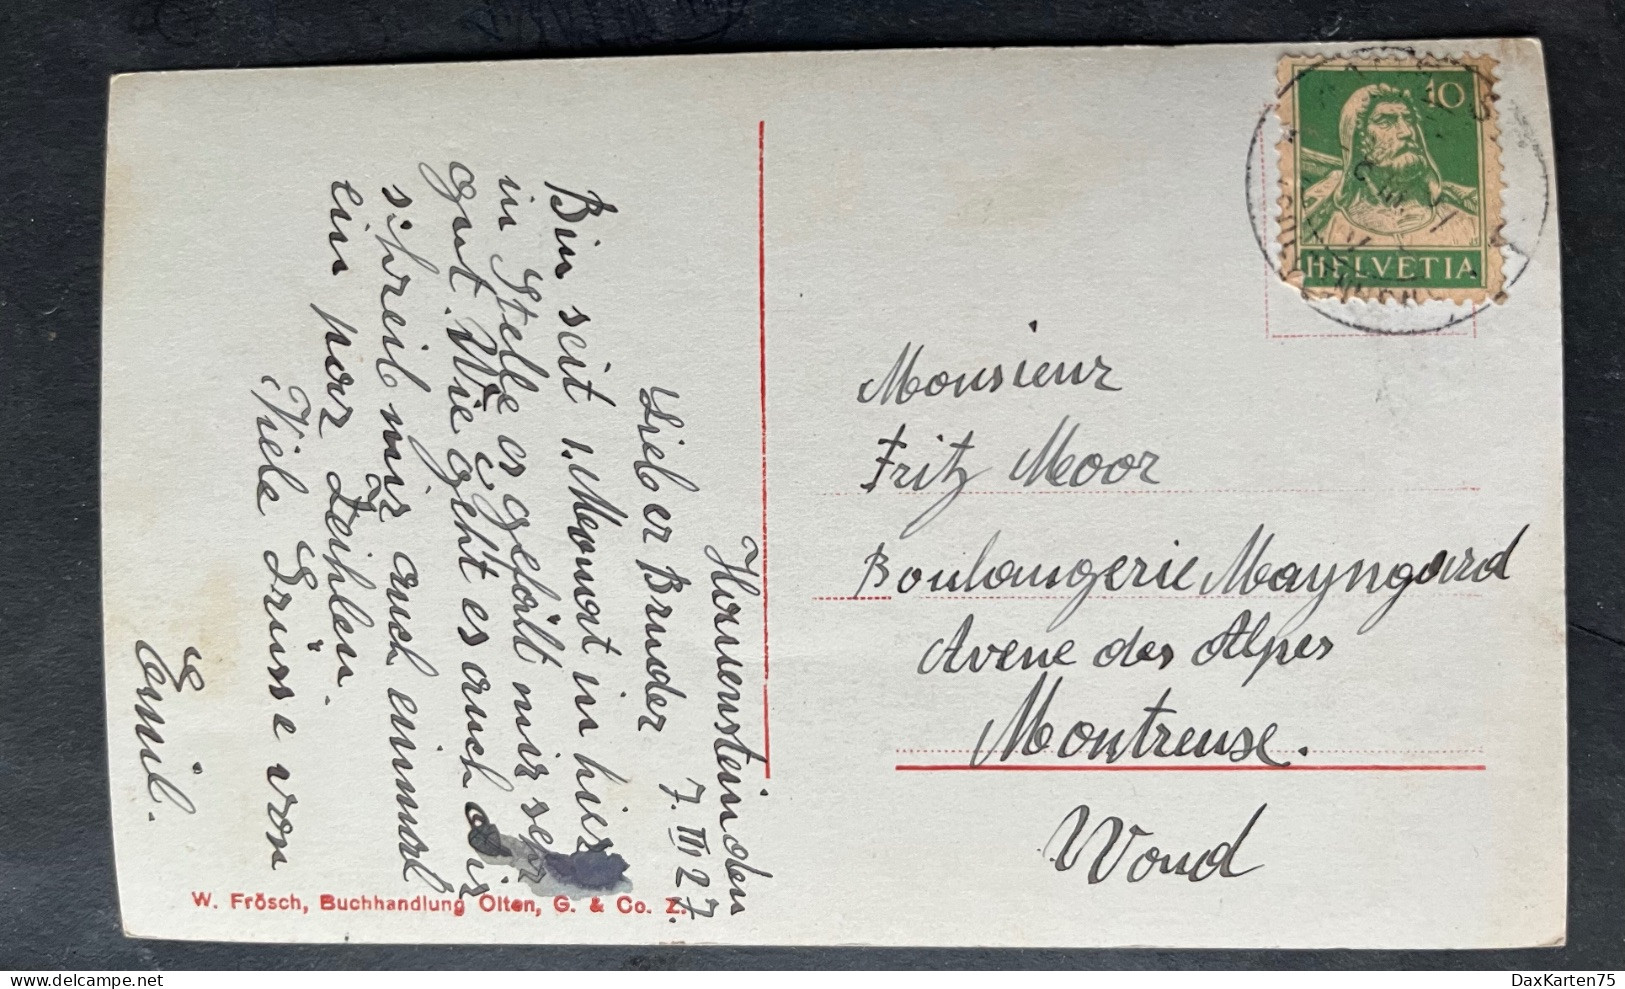 Hauensteinden
7. III 27
Lieber Bruder
Bin seit 1. Monat in hier
in Stelle es gefält mir sehr
gut. Wie geht es auch dir
schreib mir auch einmal
ein par Zeihlen.
Viele Grüsse von
Emil.
W. Frösch, Buchhandlung Olten, G. & Co. Z.
10
HELVETIA
Monsieur
Fritz Moor
Boulangerie Mayngard
Avene des Alpes
Montreuse.
Waud
DaxKarten75